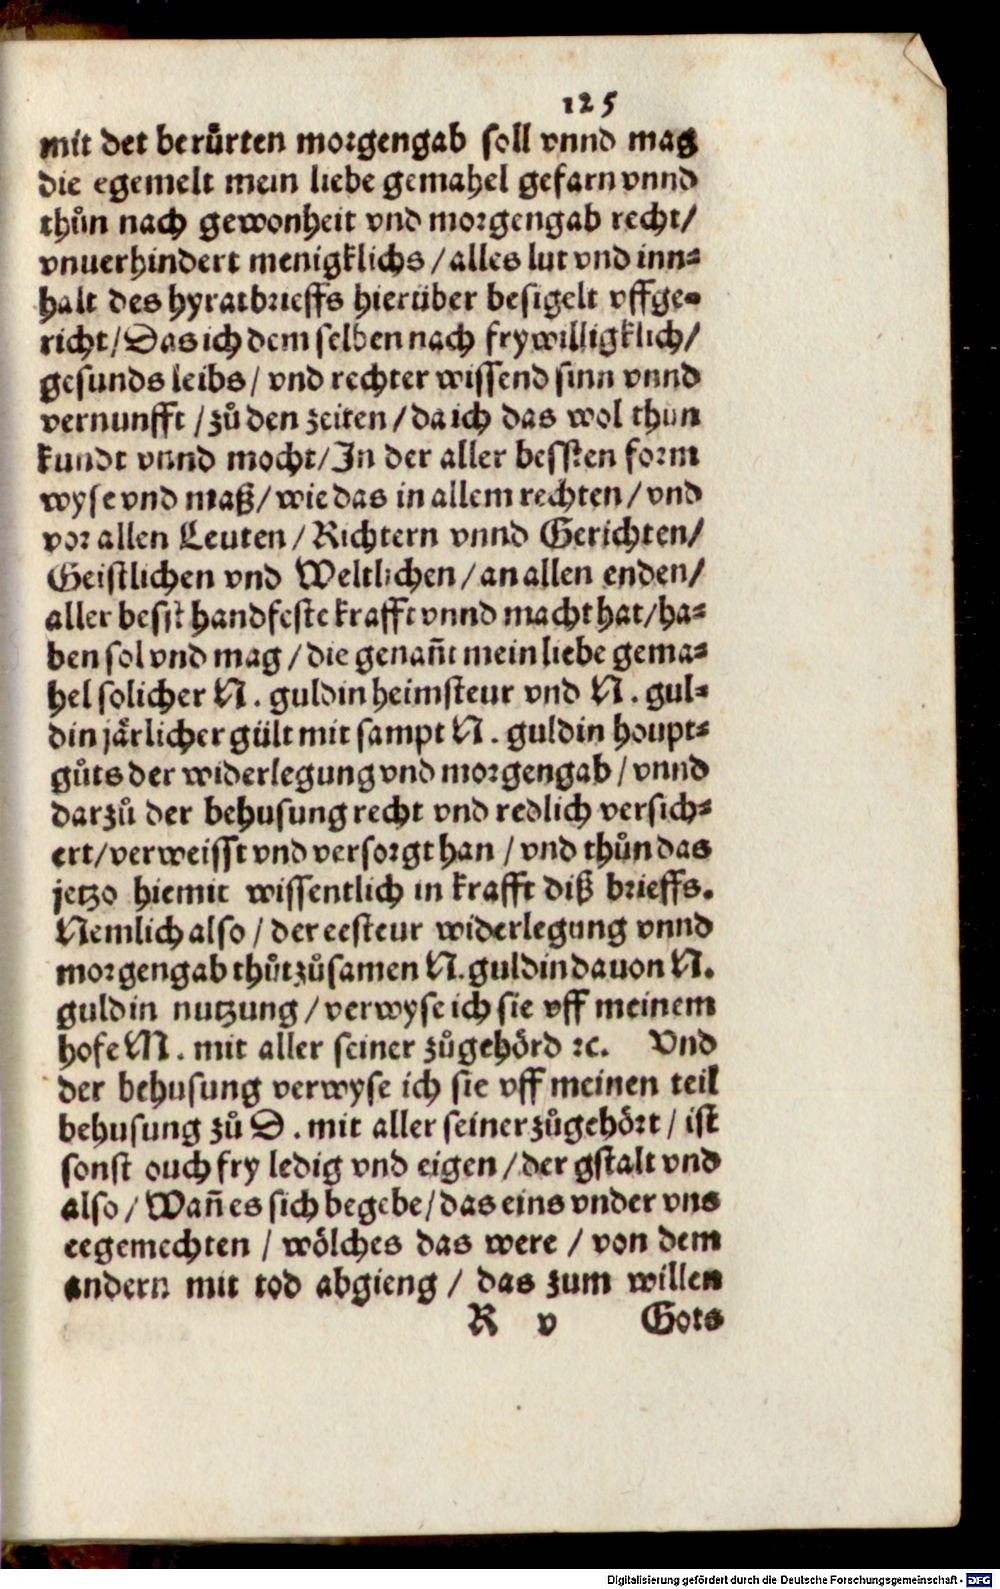 125
mit det berůrten morgengab soll vnnd mag
die egemelt mein liebe gemahel gefarn vnnd
thůn nach gewonheit vnd morgengab recht/
vnuerhindert menigklichs / alles lut vnd inn⸗
halt des hyratbrieffs hierüber besigelt vffge⸗
richt/Das ich dem selben nach frywilligklich/
gesunds leibs / vnd rechter wissend sinn vnnd
vernunfft / zů den zeiten / da ich das wol thun
kundt vnnd mocht/In der aller bessten form
wyse vnd maß/ wie das in allem rechten / vnd
vor allen Leuten / Richtern vnnd Gerichten/
Geistlichen vnd Weltlichen / an allen enden/
aller besst handfeste krafft vnnd macht hat/ha⸗
ben sol vnd mag / die genañt mein liebe gema⸗
hel solicher N. guldin heimsteur vnd N. gul⸗
din jårlicher gült mit sampt N. guldin houpt⸗
gůts der widerlegung vnd morgengab / vnnd
darzů der behusung recht vnd redlich versich⸗
ert/verweisst vnd versorgt han / vnd thůn das
jetzo hiemit wissentlich in krafft diß brieffs.
Nemlich also / der eesteur widerlegung vnnd
morgengab thůt zůsamen N. guldin dauon N.
guldin nutzung / verwyse ich sie vff meinem
hofe M. mit aller seiner zůgehörd ꝛc. Vnd
der behusung verwyse ich sie vff meinen teil
behusung zů D. mit aller seiner zůgehört / ist
sonst ouch fry ledig vnd eigen / der gstalt vnd
also / Wañ es sich begebe/das eins vnder vns
eegemechten / wölches das were / von dem
andern mit tod abgieng / das zum willen
R v Gots
Digitalisierung gefördert durch die Deutsche Forschungsgemeinschaft - DFG